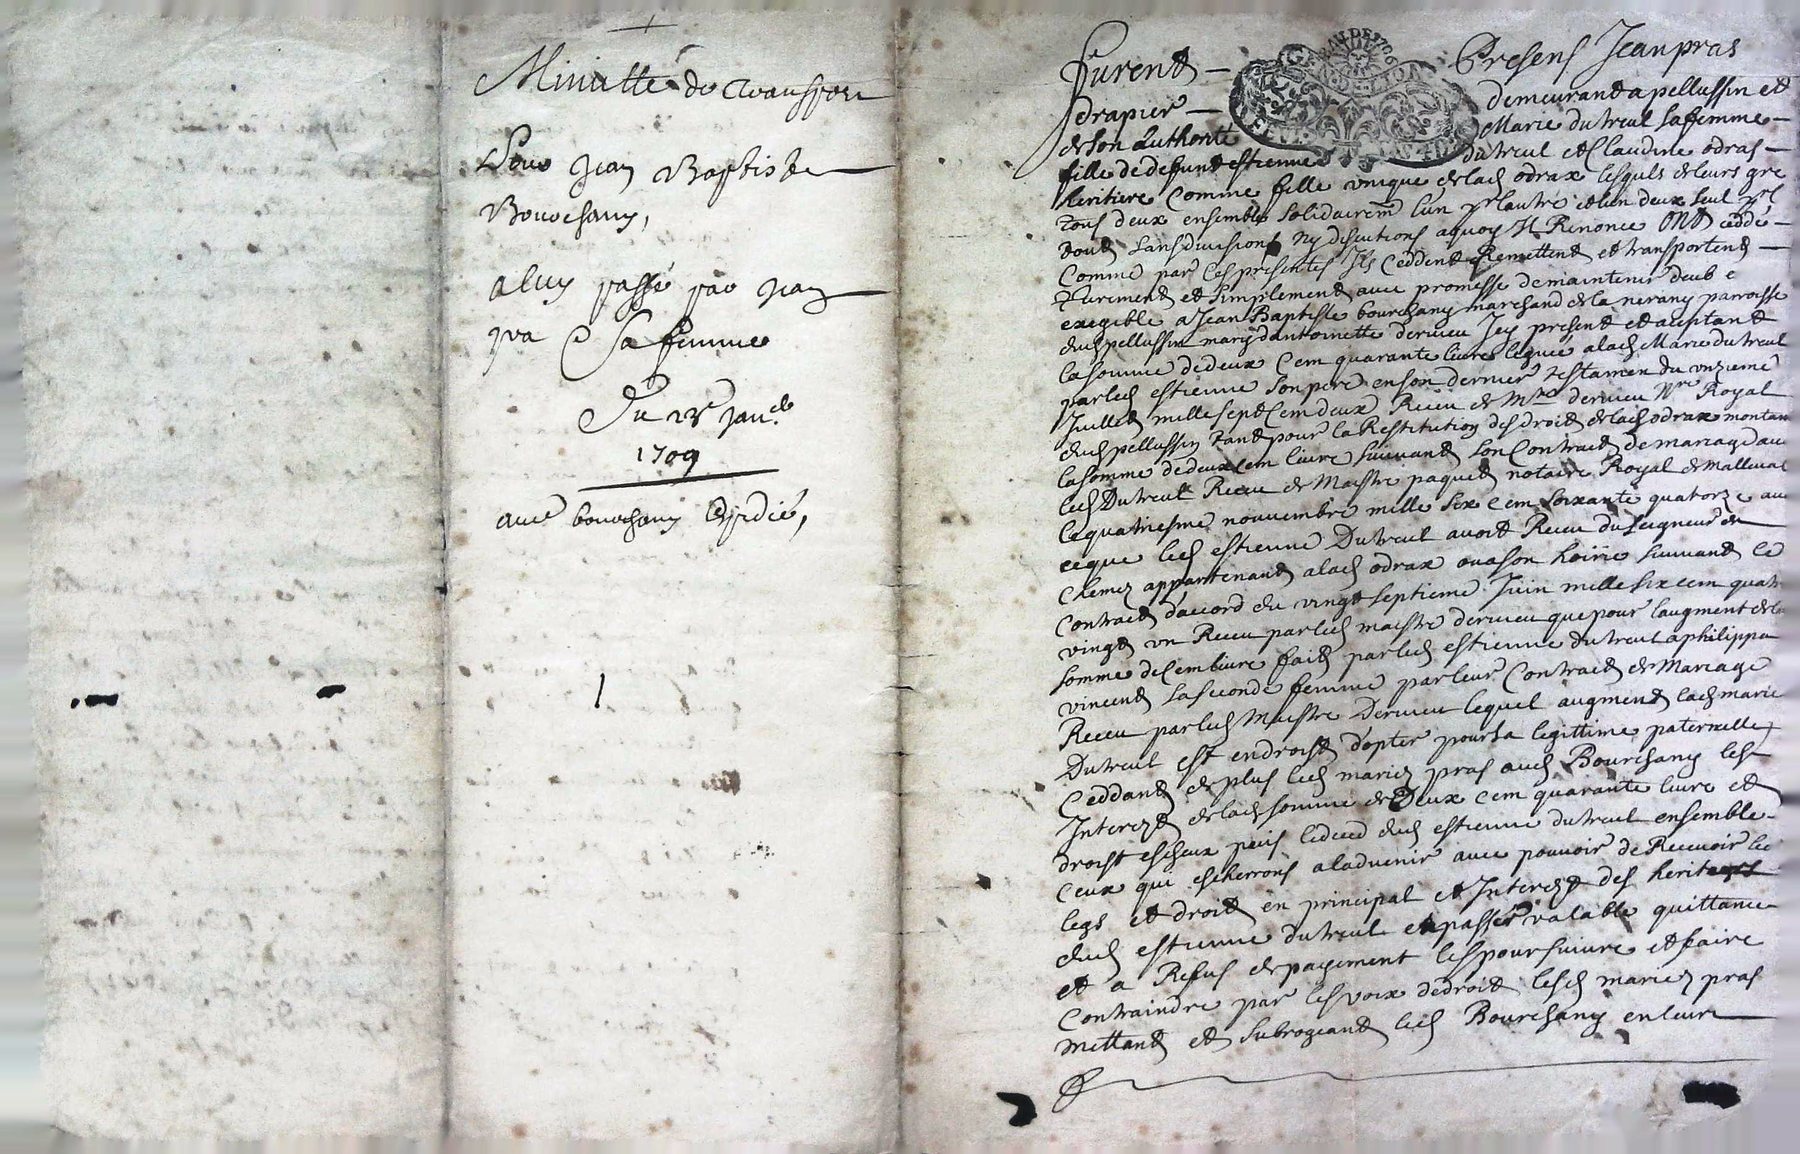 Minutte de transport
Pour Jean Baptiste
Bourchany,
a luy passé par Jean
pra & sa femme
Du 28 Janr.
1709
avec bourchany Expedié,
Furent Presens Jean pras
drapier demeurand a pellussin et
de son Authorité Marie dutreul sa femme
fille de deffund estienne dutreul et Claudine odras
heritiere Comme fille unique de lad odrax lesquls de leurs gre
tous deux ensemble solidairemt lun pr lautre et lun deux seul pr le
toud sans divisions ny discutions aquoy Il Renonce ONt ceddé
Comme par ces presentes Ils Ceddend Remettend et transportend
purement et simplement avec promesse de maintenir deub e
exegible a Jean Baptiste bourchany marchand de la nerany parroisse
dud pellussin mary dantoinette derieu Icy present et aceptand
la somme de deux Cem quarante livres leguée alad Marie dutreul
par led estienne son pere en son dernier testamen du unzieme
Juilled mille sept Cem deux Receu de Mre derieu Nre Royal
dud pellussin tand pour la Restitution des droid de lad odrax montan
la somme de deux Cem livre suivand son Contract de mariage avec
led Dutreul Receu de Maistre paqued notaire Royal de malleval
le quatriesme nouvembre mille six Cem soixante quatorze
ceque led estienne Dutreul avoit Receu du seigneur de
Chemez appartenand alad odrax ou a son hoirie suivand le
Contract d'accord du vingt septieme Juin mille six cem quatre
vingt un Receu par led maistre derieu que pour laugment de la
somme de Cem livre faid par led estienne dutreul a philippa
vincend sa seconde femme par leur Contract de Mariage
Receu par led Maistre Derieu lequel augmend lad marie
Dutreul est en droict d'opter pour sa legittime paternelle,
Ceddand de plus led mariez pras aud Bourchany les
Interezt de lad somme de Deux Cem quarante livre et
droist escheux puis ledeced dud estienne dutreul ensemble
Ceux qui escherrons aladvenir avec pouvoir de Recevoir le
legs et droid en principal et Interezt des heritiers
dud estienne dutreul en passer valable quittance
et a Refus de payement les poursuivre et faire
Contraindre par les voix de droid, lesd mariez pras
mettand et subrogeand led Bourchany en leur